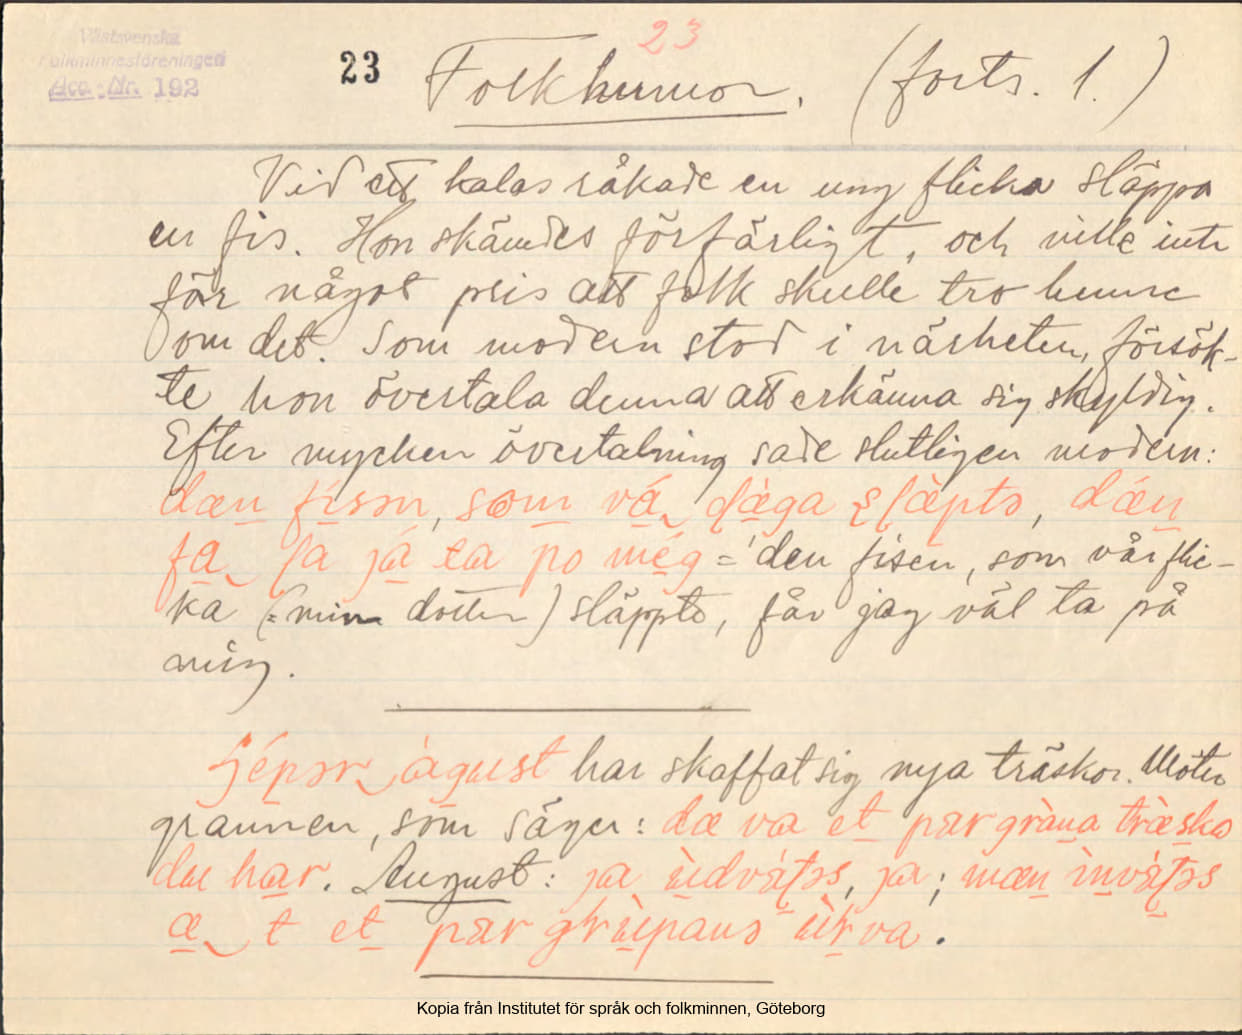 Västsvenska
Folkminnesföreningen
Acc. Nr. 192
23
23
Folkhumor. (forts. 1.)
Vid ett kalas råkade en ung flicka släppa
en fis. Hon skämdes förfärligt, och ville inte
för något pris att folk skulle tro henne
om det. Som modern stod i närheten, försök-
te hon övertala denna att erkänna sig skyldig.
Efter mycken övertalning sade slutligen modern:
dæn fisən, som vá
dæn
fa ja ta po még = 'den fisen, som vår flic-
ka (= min dotter) släppte, får jag väl ta på
mig.
har skaffat sig nya träskor. Möter
grannen, som säger: dæ va et par gràna træsko
du har. August: ja, ja; mæn
æ t et par va.
Kopia från Institutet för språk och folkminnen, Göteborg